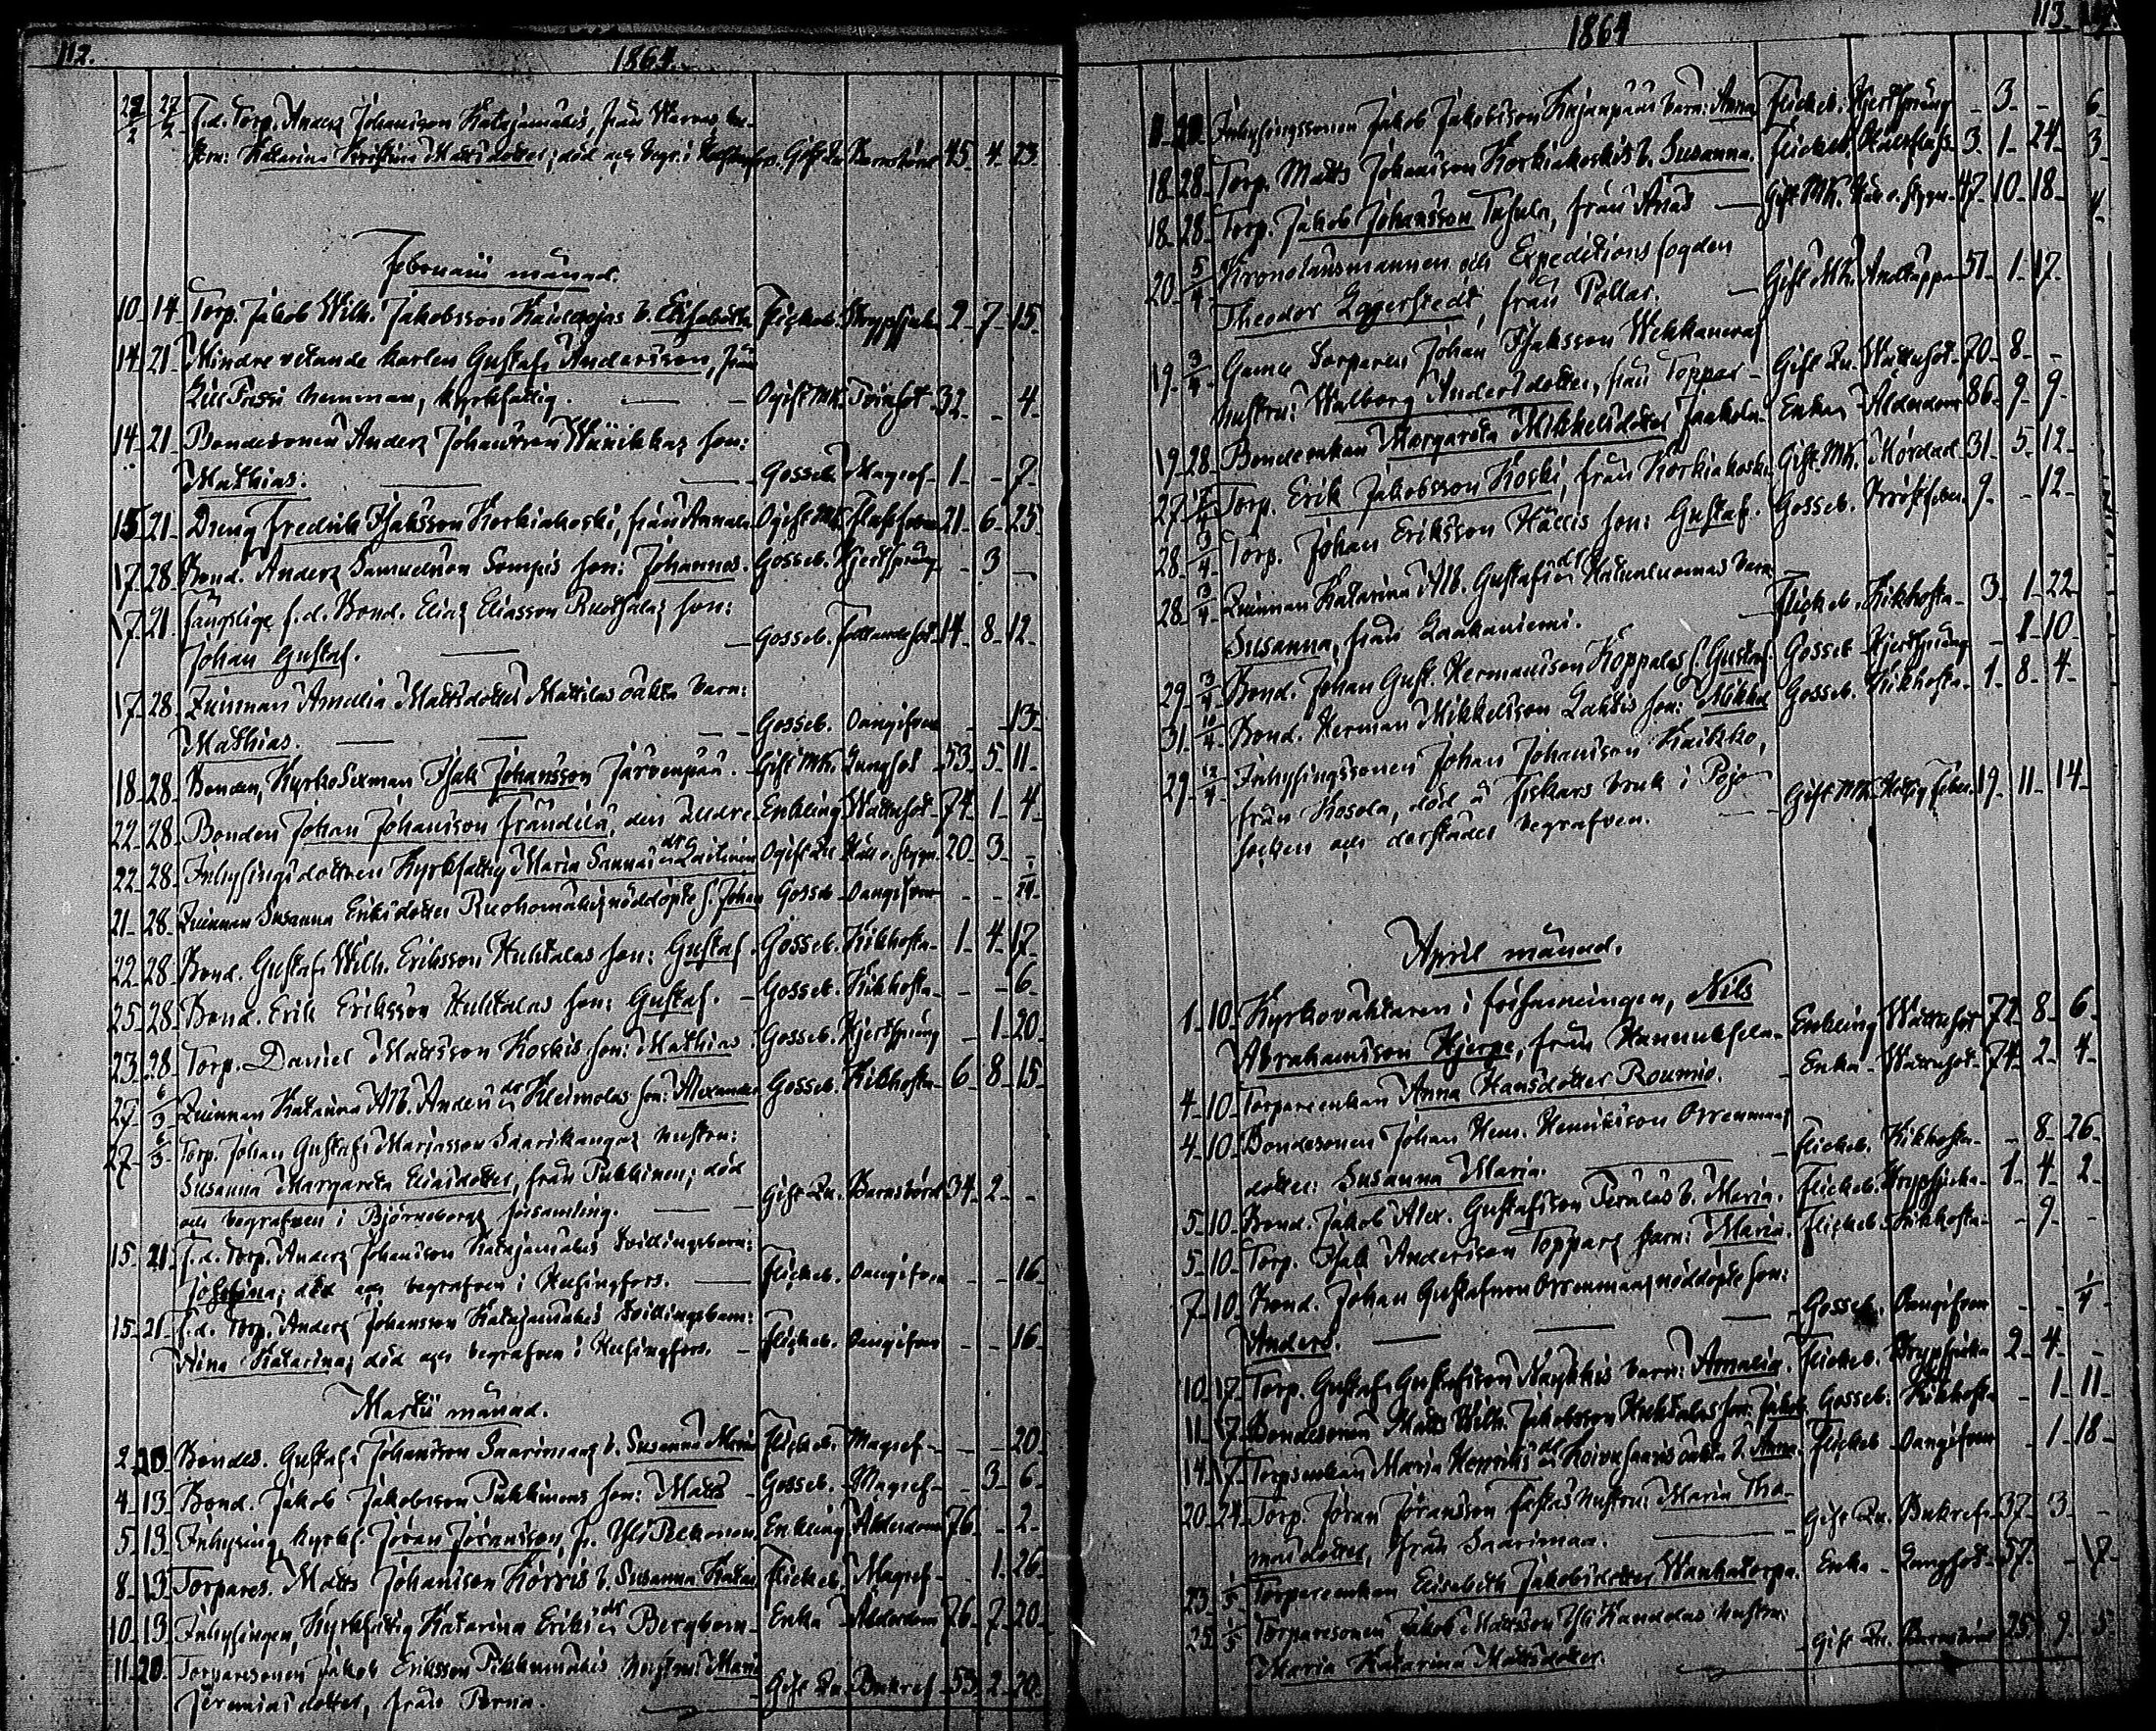 112. 1864.
27/2 F. d. Torp. Anders Johansson Katajamäkis, från
Katarina Kristina Mattsdotter; död och begr. i Gift Qv. Barnsbörd 45. 4. 23.
Februarii månad.
10. 14. Torp. Jakob Wilh. Jakobsson b. Flickeb. Strypsjuka 2. 7. 15.
14. 21. Mindre vetande karlen Gustaf Andersson, från
hemman, kyrkfattig. Ogift Mk. Tvinsot 32. - 4.
14. 21. Bondesonen Anders Johansson son:
Mathias. Gosseb. Magref 1. - 7.
15. 21. Dreng Fredrik Isaksson Korkiakoski, från Annala Ogift Mk. 21. 6. 25.
17. 28. Bond. Anders Samuelsson Sompis son: Johannes. Gosseb. Hjertsprång - 3. -
17. 21. f. d. Bond. Elias Eliasson son:
Johan Gustaf. Gosseb. Fallandesot 14. 8. 12.
17. 28. Qvinnan Amalia Mattsdotter Mattilas oäkta barn:
Mathias. Gosseb. Oangifven - - 13.
18. 28. Bonden, Kyrko Sexman Isak Johansson Järvenpää. Gift Mk. Lungsot 53. 5. 11.
22. 28. Bonden Johan Johansson Frändilä, den äldre Enkling Wattusot 74. 1. 4.
22. 28. Inhysingsdottren Kyrkfattig Maria Ogift Qv. Håll o. stygn 20. 3. -
21. 28. Qvinnan Susanna Eriksdotter Ruohomäkis nöddöpte s. Johan Gosseb. Oangifven - -
22. 28. Bond. Gustaf Wilh. Eriksson Huhtalas son: Gustaf. Gosseb. Kikhosta 1. 4. 17.
25. 28. Bond. Erik Eriksson Huhtalas son: Gustaf. Gosseb. Kikhosta - - 6.
23. 28. Torp. Daniel Mattsson Koskis son: Mathias. Gosseb. Hjertsprång - 1. 20.
27. 6/3 Qvinnan Katarina Alb. Anders dr Heimolas son: Alexander Gosseb. Kikhosta 6. 8. 15.
27. 6/3 Torp. Johan Gustaf Mariasson Saarikangas hustru:
Susanna Margareta Eliasdotter, från Pukkinen; död
och begrafven i Björneborgs församling. Gift Qv. Barnsbörd 34. 2. -
15. 21. F. d. Torp. Anders Johansson Katajamäkis tvillingsbarn:
Josefina; död och begrafven i Helsingfors. Flickeb. Oangifven - - 16.
15. 21. F. d. Torp. Anders Johansson Katajamäkis tvillingsbarn:
Katarina; död och begrafven i Helsingfors. Flickeb. Oangifven - - 16.
Martii månad.
2. 20. Bondes. Gustaf Johansson Saarimaas b. Susanna Maria Flickeb. Magref - - 20.
4. 13. Bond. Jakob Jakobsson Pukkinens son: Matts Gosseb. Magref - 3. 6.
5. 13. Inhysing, kyrkf. Jöran Jöransson, fr. Enkling Ålderdom 76. - 2.
8. 13. Torpares. Matts Johansson Korris b. Susanna Flickeb. Magref - 1. 26.
10. 13. Inhysingen, Kyrkfattig Katarina Eriks dr Bergbom Enka Ålderdom 76. 7. 20.
11. 20. Torparesonen Jakob Eriksson hustru: Maria
Jeremiasdotter, från Perna. Gift Qv. Bukref 53. 2. 20.
1864 113.
11. 20. Inhysingssonen Jakob Jakobsson barn: Anna Flickeb. Hjertsprång - 3. - 6
18. 28. Torp. Matts Johansson Korkiakoskis b. Susanna. Flickeb. 3. 1. 24. 3
18. 28. Torp. Jakob Johansson från Gift Mk. Håll o. stygn 47. 10. 18. 4
20. 5/4 Kronolänsmannen och Expeditionsfogden
Theodor Lagerstedt, från Pollar. Gift Mk. Andtäppa 51. 1. 17.
19. 3/4 Gamle Torparen Johan Isaksson
hustru: Walborg Andersdotter, från Toppar Gift Qv. Wattusot 70. 8. -
19. 28. Bondeenkan Margareta Mikkelsdotter Jaakola Enka Ålderdom 86. 9. 9.
27. Torp. Erik Jakobsson Koski, från Korkiakoski Gift Mk. Mördad 31. 5. 12.
28. 3/4 Torp. Johan Eriksson son: Gustaf. Gosseb. 9. - 12.
28. 3/4 Qvinnan Katarina Alb. Gustafs dr barn
Susanna, från Laakaniemi. Flickeb. Kikhosta 3. 1. 22.
29. 3/4 Bond. Johan Gust. Hermansson Koppalas s. Gustaf. Gosseb. Hjertsprång - 1. 10.
31. 10/4 Bond. Herman Mikkelsson Lahtis son: Mikkel Gosseb. Kikhosta 1. 8. 4.
29. Inhysingssonen Johan Johansson
från Kosola, död å Fiskars bruk i Pojo
socken och derstädes begrafven. Gift Mk. 19. 11. 14.
April månad.
1. 10. Kyrkovaktaren i församlingen, Nils
Abrahamsson Hjerpe, från Hannuksela Enkling Wattusot 72. 8. 6.
4. 10. Torpareenkan Anna Hansdotter Roumio. Enka Wattusot 74. 2. 4.
4. 10. Bondesonen Johan Hen. Henriksson Orrenmaas
dotter: Susanna Maria. Flickeb. Kikhosta - 8. 26.
5. 10. Bond. Jakob Alex. Gustafsson b. Maria. Flickeb. Strypsjuka 1. 4. 2.
5. 10. Torp. Isak Andersson Toppars barn: Maria. Flickeb. Kikhosta - 9. -
7. 10. Bond. Johan Gustafsson Orrenmaas nöddöpte son:
Anders. Gosseb. Oangifven - -
10. 17. Torp. Gustaf Gustafsson barn: Amalia. Flickeb. Strypsjuka 2. 4. -
11. 17. Bondesonen Matts Wilh. Jakobsson Huhtalas son: Jakob. Gosseb. Kikhosta - 1. 11.
14. 17. Torpenkan Maria Henriks dr Koivusaaris oäkta b. Anna. Flickeb. Oangifven - 1. 18.
20. 24. Torp. Jöran Jöransson hustru: Maria Tho-
masdotter, från Saarimaa. Gift Qv. Bukref 37. 3. -
23. 1/5 Torpareenkan Elisabeth Jakobsdotter Wanhatorpa. Enka Lungsot 57. - 17.
25. 1/5 Torparesonen Jakob Mattsson hustru:
Maria Katarina Mattsdotter. Gift Qv. Barnsbörd 25. 9. 5.